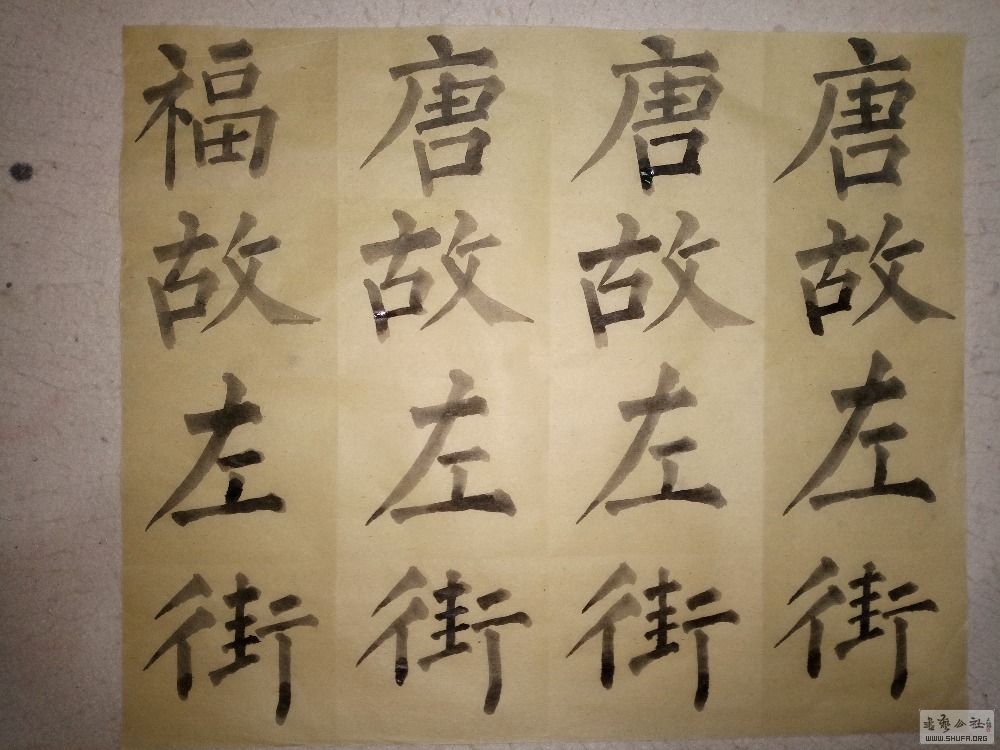 唐故左街
唐故左街
唐故左街
福故左街
書藝公社
WWW.SHUFA.ORG